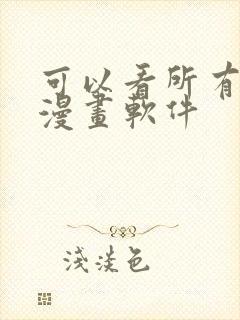 可以看所有
漫畫軟件
淺淡色